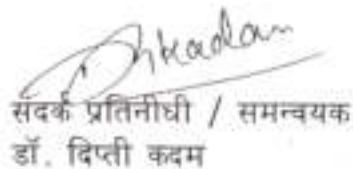 Dhkadam
संदर्क प्रतिनीधी / समन्वयक
डॉ. दिप्ती कदम